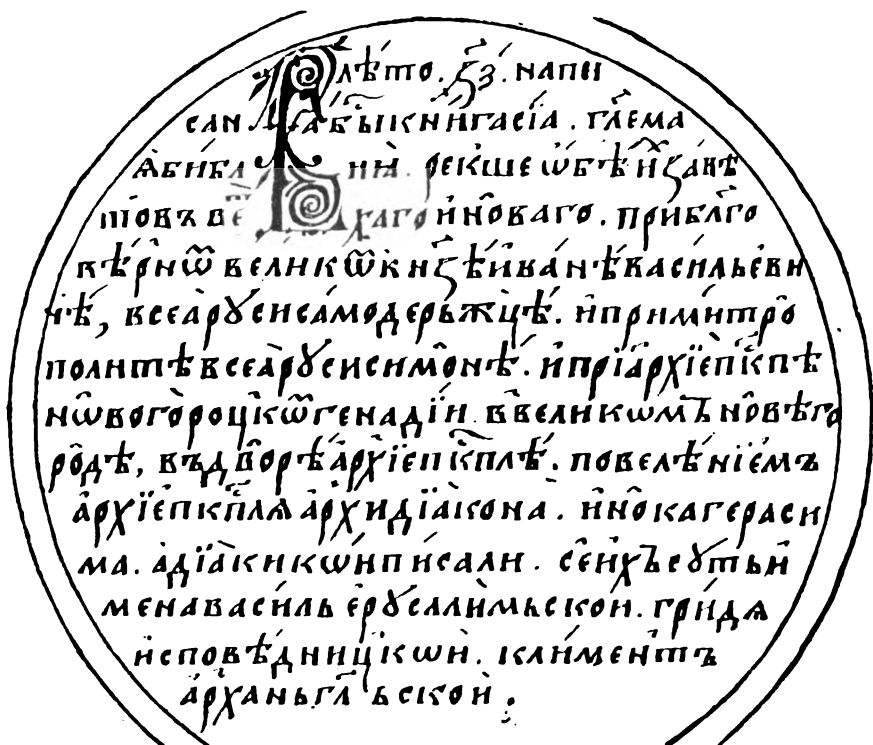 в лѣто. ҂зз҃. напи
сана бы́ книга сїа. гл҃емаѧ
библиꙗ. рекше ѡбѣи́хъ завѣ
товъ ветхаго и҆ новаго. при бл҃го
вѣрно́мъ вели́кѡ кн҃ѕѣ и҆ва́нѣ васи́льеви
чѣ, всеа̀ рꙋ́сии самоде́ръжцѣ. и҆ при ми́тро
поли́тѣ всеа̀ рꙋси си́монѣ. и҆ при а҆рхїеп҃кпѣ
нѡвогоро́цкѡ гена́дїи. в вели́кѡмъ но́вѣго
ро́дѣ, въ дворѣ̀ а҆рхїеп҃кплѣ. повелѣ́нїемъ
а҆рхїеп҃кплѧ а҆рхидїа́кона. и҆но́ка гера́си
ма. а҆ дїа̀ки кѡи писали. се́ и҆хъ сꙋть и҆
мена васи́ль е҆рꙋсали́мьскои. гри́дѧ
и҆сповѣ́дницкѡи. кли́ментъ
а҆рха́ньгльскои.